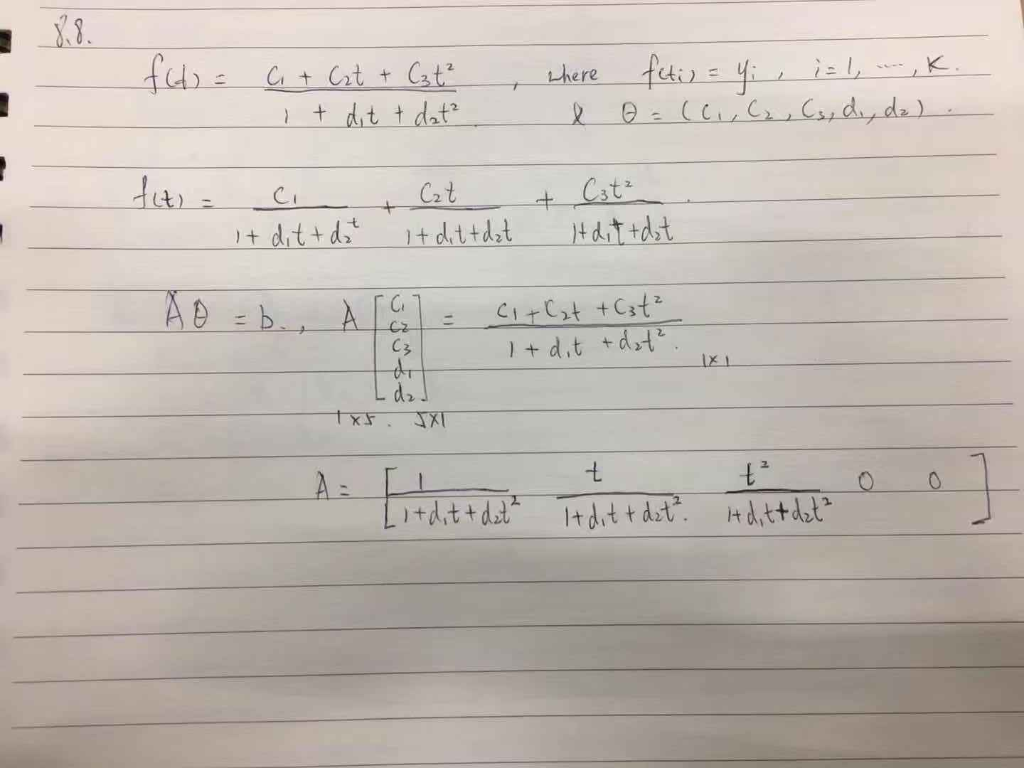 8.8.
f(t) = (c₁ + c₂t + c₃t²) / (1 + d₁t + d₂t²) , where f(ti) = yi , i=1, ..., K.
& θ = (c₁, c₂, c₃, d₁, d₂) .
f(t) = c₁ / (1 + d₁t + d₂t) + c₂t / (1 + d₁t + d₂t) + c₃t² / (1 + d₁t + d₂t) .
Aθ = b. , A [c₁ c₂ c₃ d₁ d₂] = (c₁ + c₂t + c₃t²) / (1 + d₁t + d₂t².)
1×5 . 5×1 1×1
A = [ 1 / (1 + d₁t + d₂t²) t / (1 + d₁t + d₂t².) t² / (1 + d₁t + d₂t²) 0 0 ]